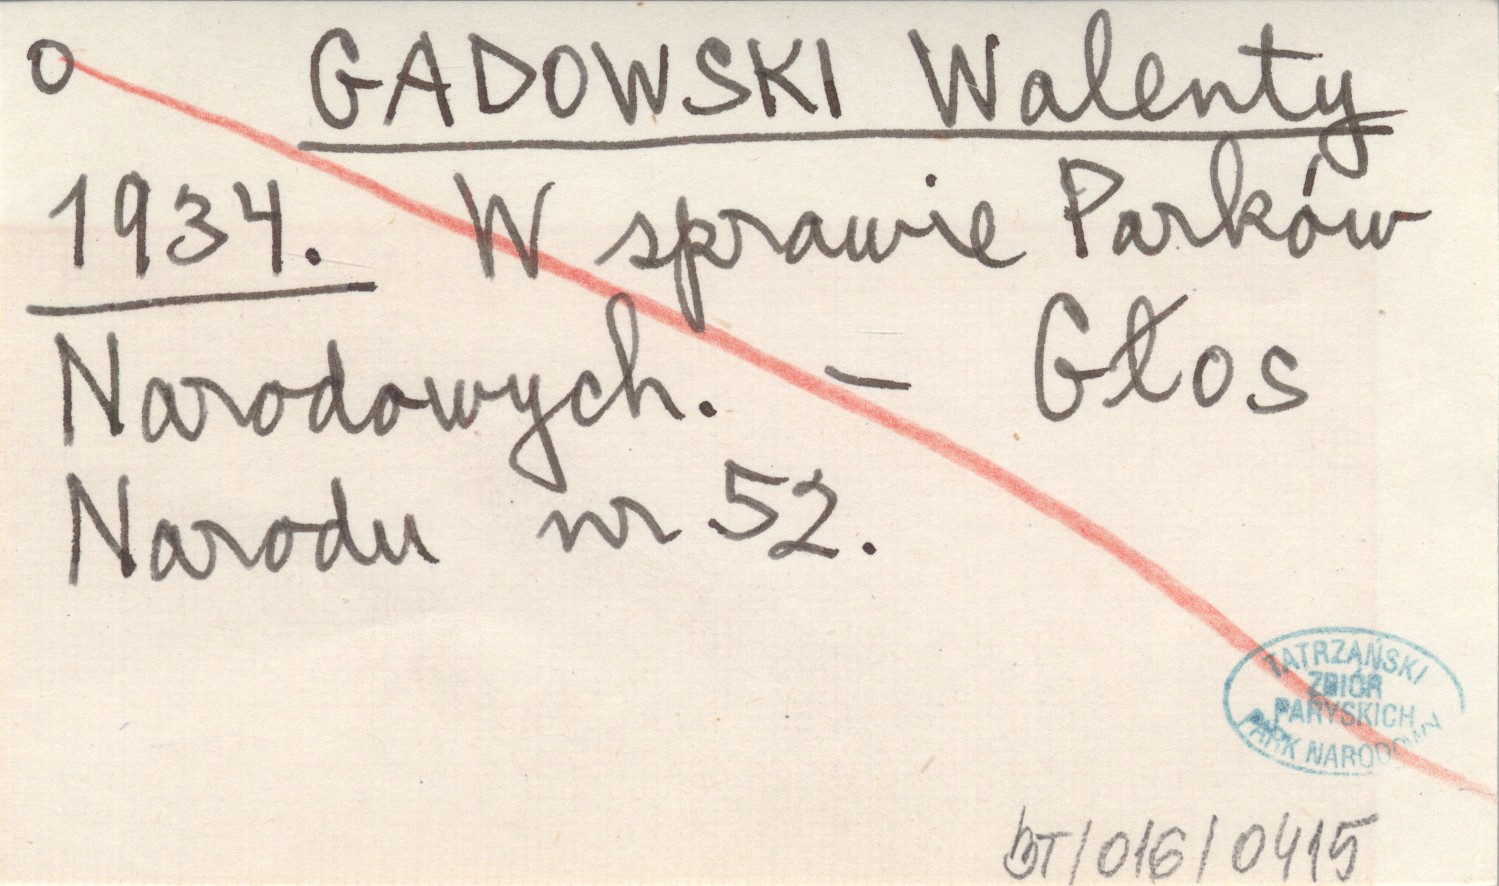 O GADOWSKI Walenty
1934. W sprawie Parków
Narodowych. – Głos
Narodu nr 52.
TATRZAŃSKI
ZBIÓR
PARYSKICH
PARK NARODOWY
BT/016/0415